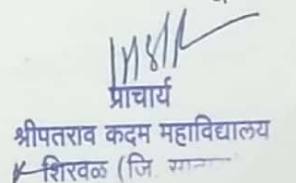 प्राचार्य
श्रीपतराव कदम महाविद्यालय
शिरवळ (जि.